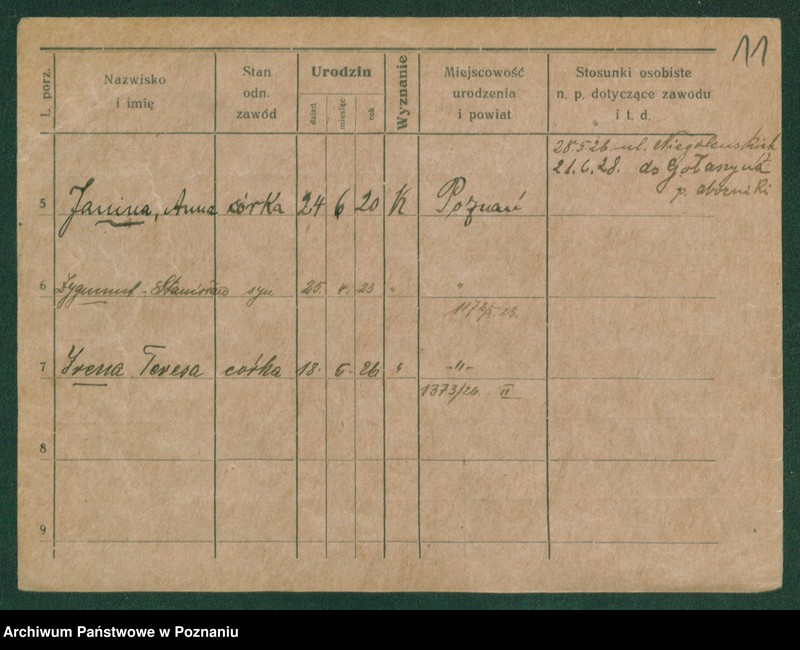 11
L. porz.
Nazwisko
i imię
Stan
odn.
zawód
Urodzin
dzień
miesiąc
rok
Wyznanie
Miejscowość
urodzenia
i powiat
Stosunki osobiste
n. p. dotyczące zawodu
i t. d.
28.5.26. ul. Niegolewskich
21.6.28. do Gołaszyna
p. oborniki
5 Janina, Anna córka 24 6 20 K Poznań
6 Zygmunt - Stanisław syn 25. 4. 23 " "
7 Irena Teresa córka 18. 5. 26 " -"-
1373/26. II
8
9
Archiwum Państwowe w Poznaniu